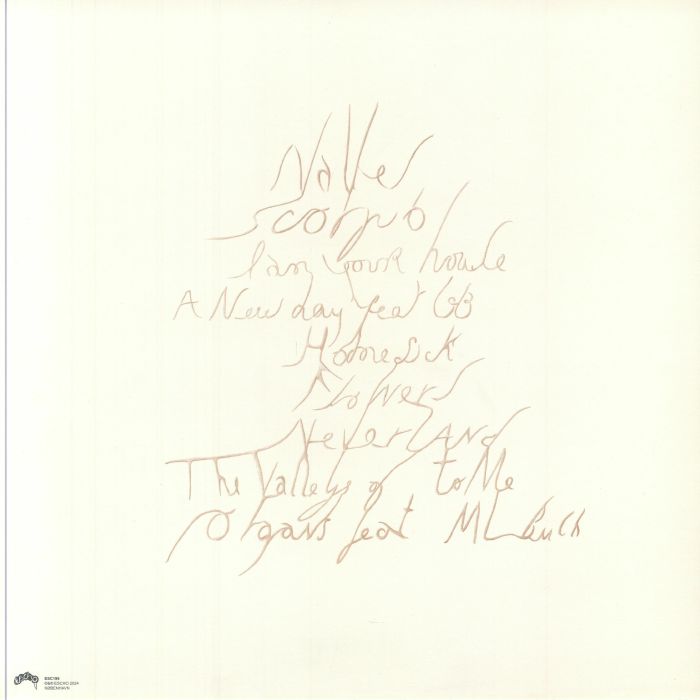 Scorpio
I am your house
A New day feat GB
Homesick
Flowers
Neverland
The Valleys of to Me
Organs feat ML Buch
escho
ESC194
©&℗ ESCHO 2024
KØBENHAVN